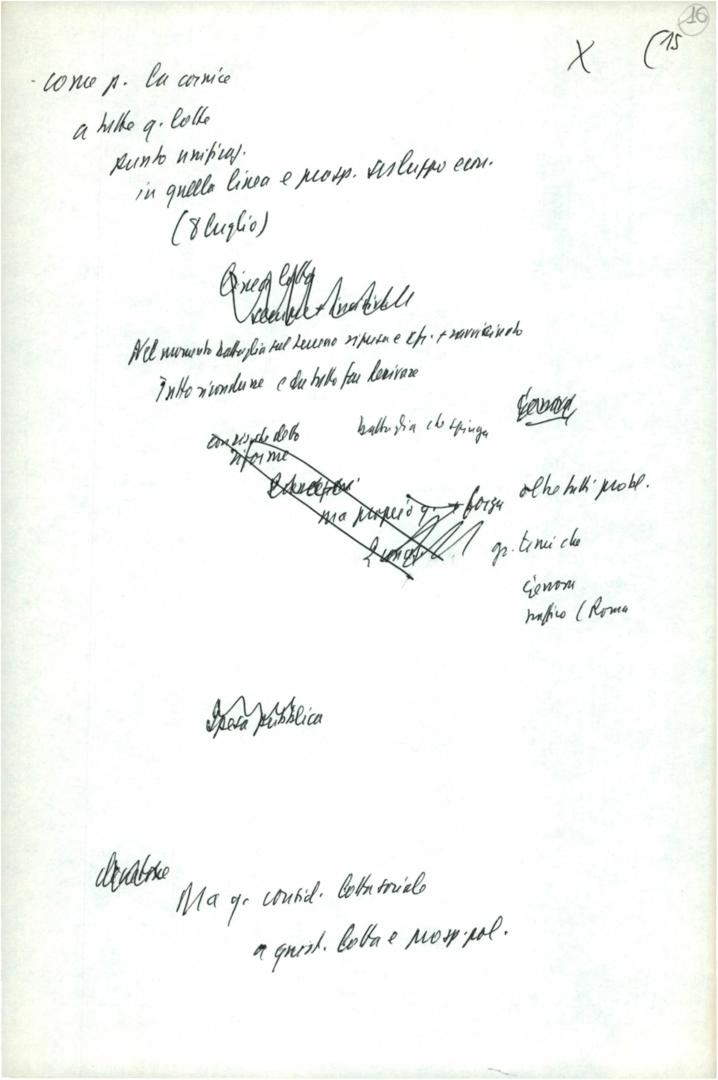 16
X (15
- come p. la cornice
a tutte q. lotte
punto unificaz.
in quella linea e prosp. sviluppo econ.
(8 luglio)
Linea lotta
Nel momento battaglia sul terreno ripresa e + ravvicinato
Tutto ricondurre e da tutto far derivare
battaglia che spinga
Genova
riforme
ma proprio q. forza
oltre tutti probl.
gr. temi che
Genova
traffico (Roma
Spesa pubblica
Ma q. consid. lotta sociale
a quest. lotta e prosp. pol.